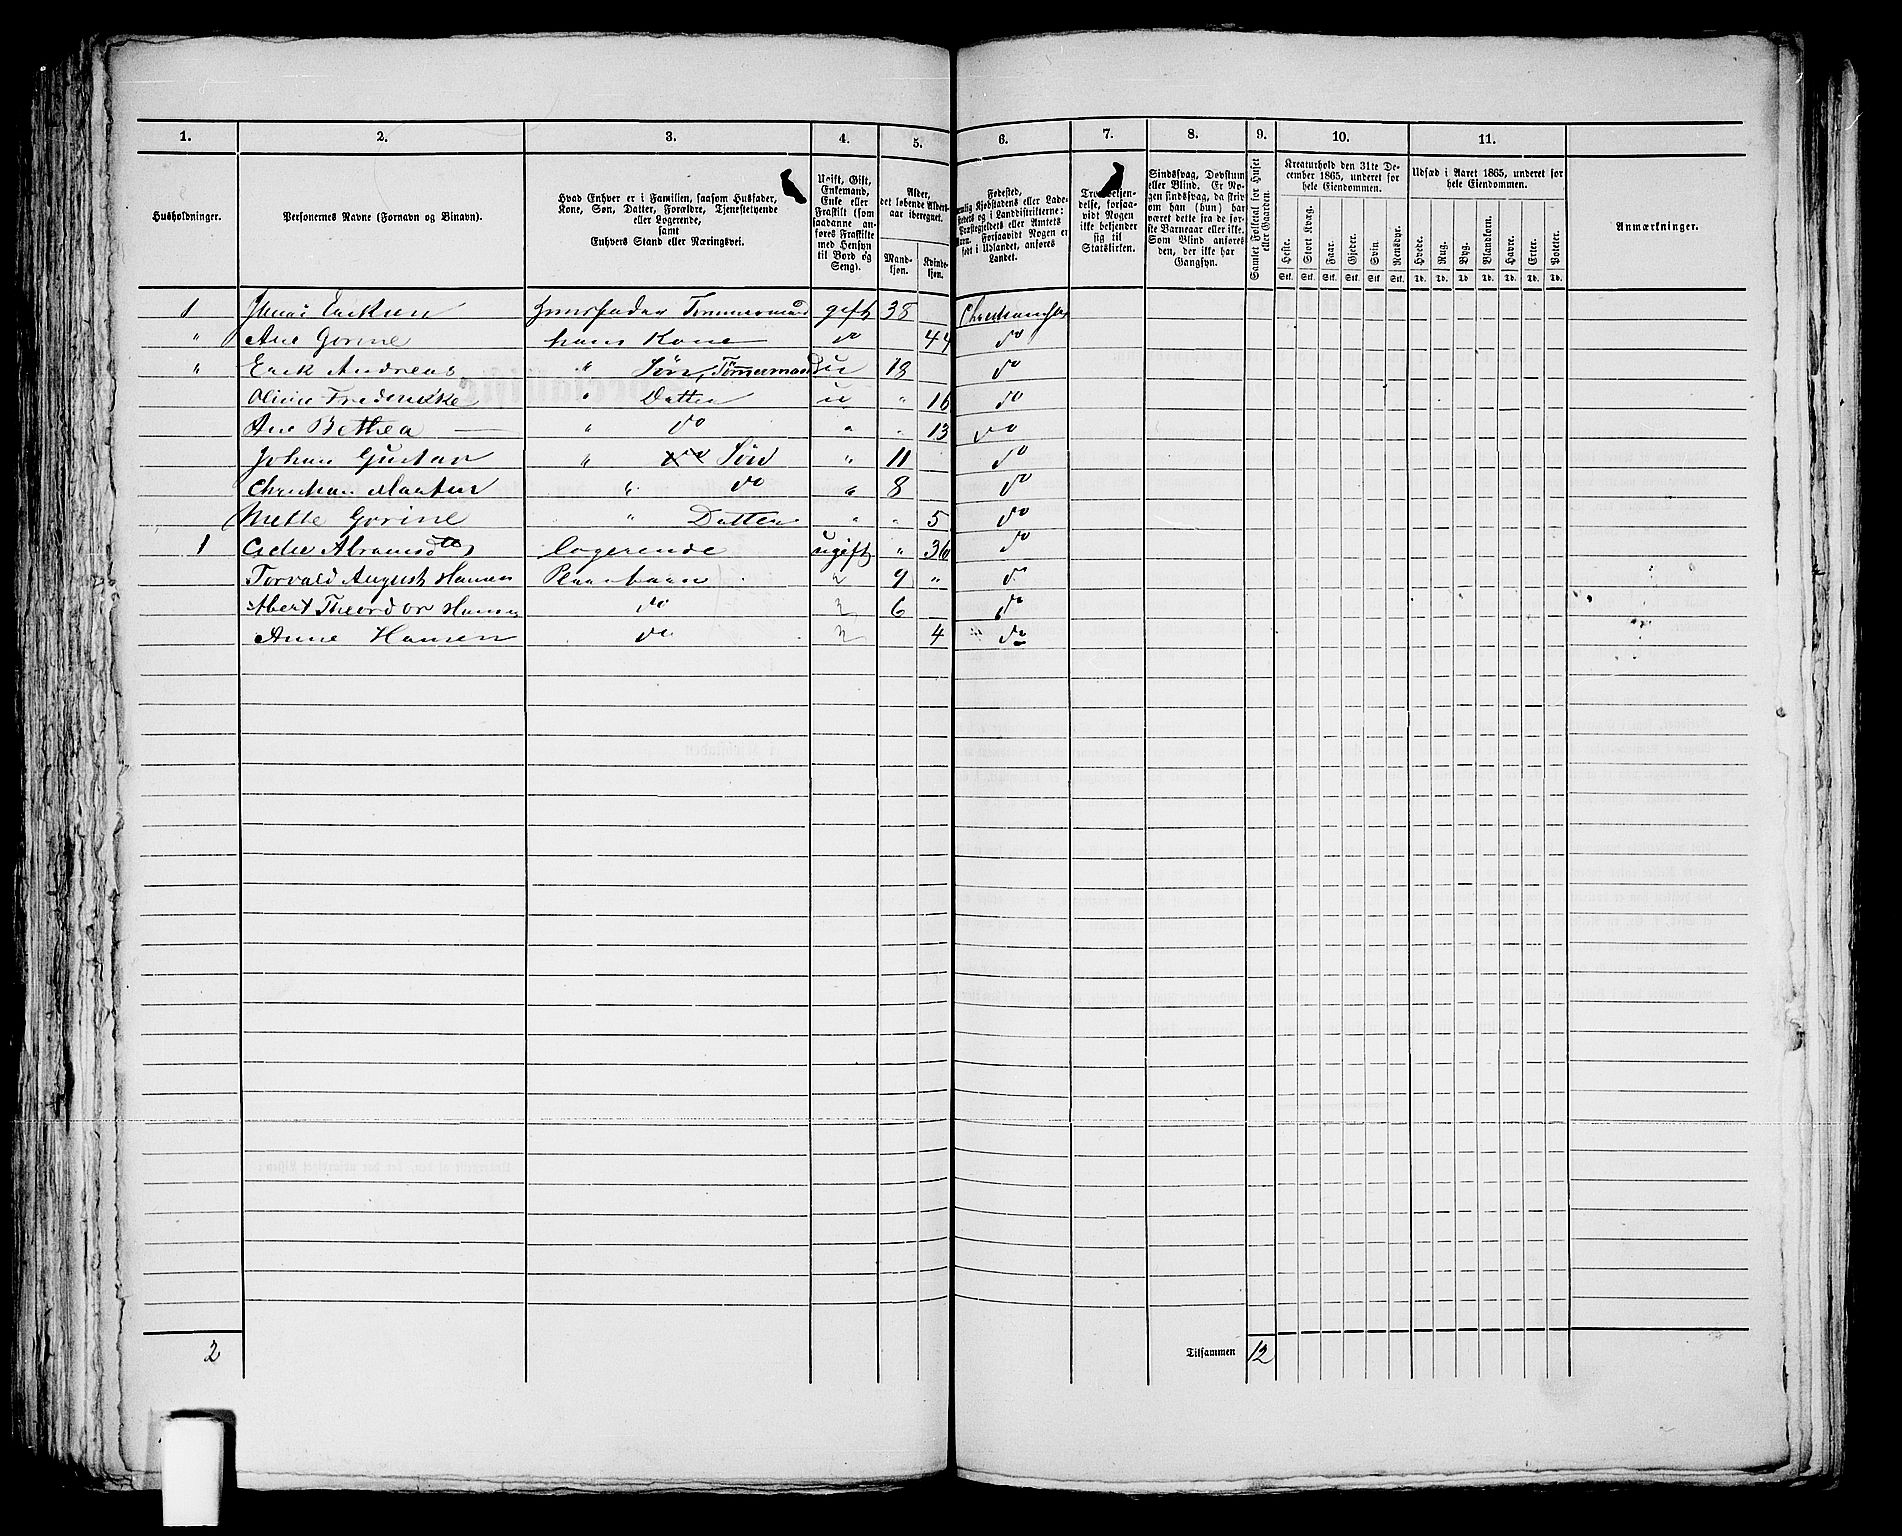 1. 2. 3. 4. 5. 6. 7. 8. 9. 10. 11.
Husholdninger.
Personernes Navne (Fornavn og Binavn).
Hvad Enhver er i Familien, saasom Husfader,
Kone, Søn, Datter, Forældre, Tjenestetyende
eller Logerende,
samt
Enhvers Stand eller Næringsvei.
Ugift, Gift,
Enkemand,
Enke eller
Fraskilt (som
saadanne an-
føres Fraskilte
med Hensyn
til Bord og
Seng).
Alder,
det løbende Alders-
aar iberegnet.
Mand-
kjøn.
Kvinde-
kjøn.
Fødested,
Kjøbstadens eller Lade-
stedets og i Landdistrikterne:
Præstegjeldets eller Amtets
Navn. Forsaavidt Nogen er
født i Udlandet, anføres
Landet.
Troesbekjen-
delse, forsaa-
vidt Nogen
ikke bekjender
sig til
Statskirken.
Sindssvag, Døvstum
eller Blind. Er No-
gen sindssvag, da skriv
om han (hun) har
været dette fra de før-
ste Barneaar eller ikke.
Som Blind anføres
den, der ikke har
Gangsyn.
Samlet Folketal for Huset
eller Gaarden.
Kreaturhold den 31te De-
cember 1865, underet for
hele Eiendommen.
Heste. Stort Kvæg. Faar. Gjeder. Svin. Rensdyr.
Stk. Stk. Stk. Stk. Stk. Stk.
Udsæd i Aaret 1865, underet for
hele Eiendommen.
Hvede. Rug. Byg. Blandkorn. Havre. Erter. Poteter.
Td. Td. Td. Td. Td. Td. Td.
Anmærkninger.
1 Ericksen Huusfader Tømmermand gift 38
" Ane Gorine hans Kone do 44 do
" Erik Andreas " Søn, Tømmermand u 18 do
Oline Frederikke " Datter u " 16 do
Ane Bethea — " do " " 13 do
Johan Gustav " do Søn " 11 do
Christian Martin " do " 8 do
Mette Gorine " Datter " " 5 do
1 Abramsdtr Logerende ugift " 36 do
Torvald August Hansen Pleiebarn 9 " do
Albert Theordor Hansen do 6 do
Anne Hansen do 4 do
2 Tilsammen 12